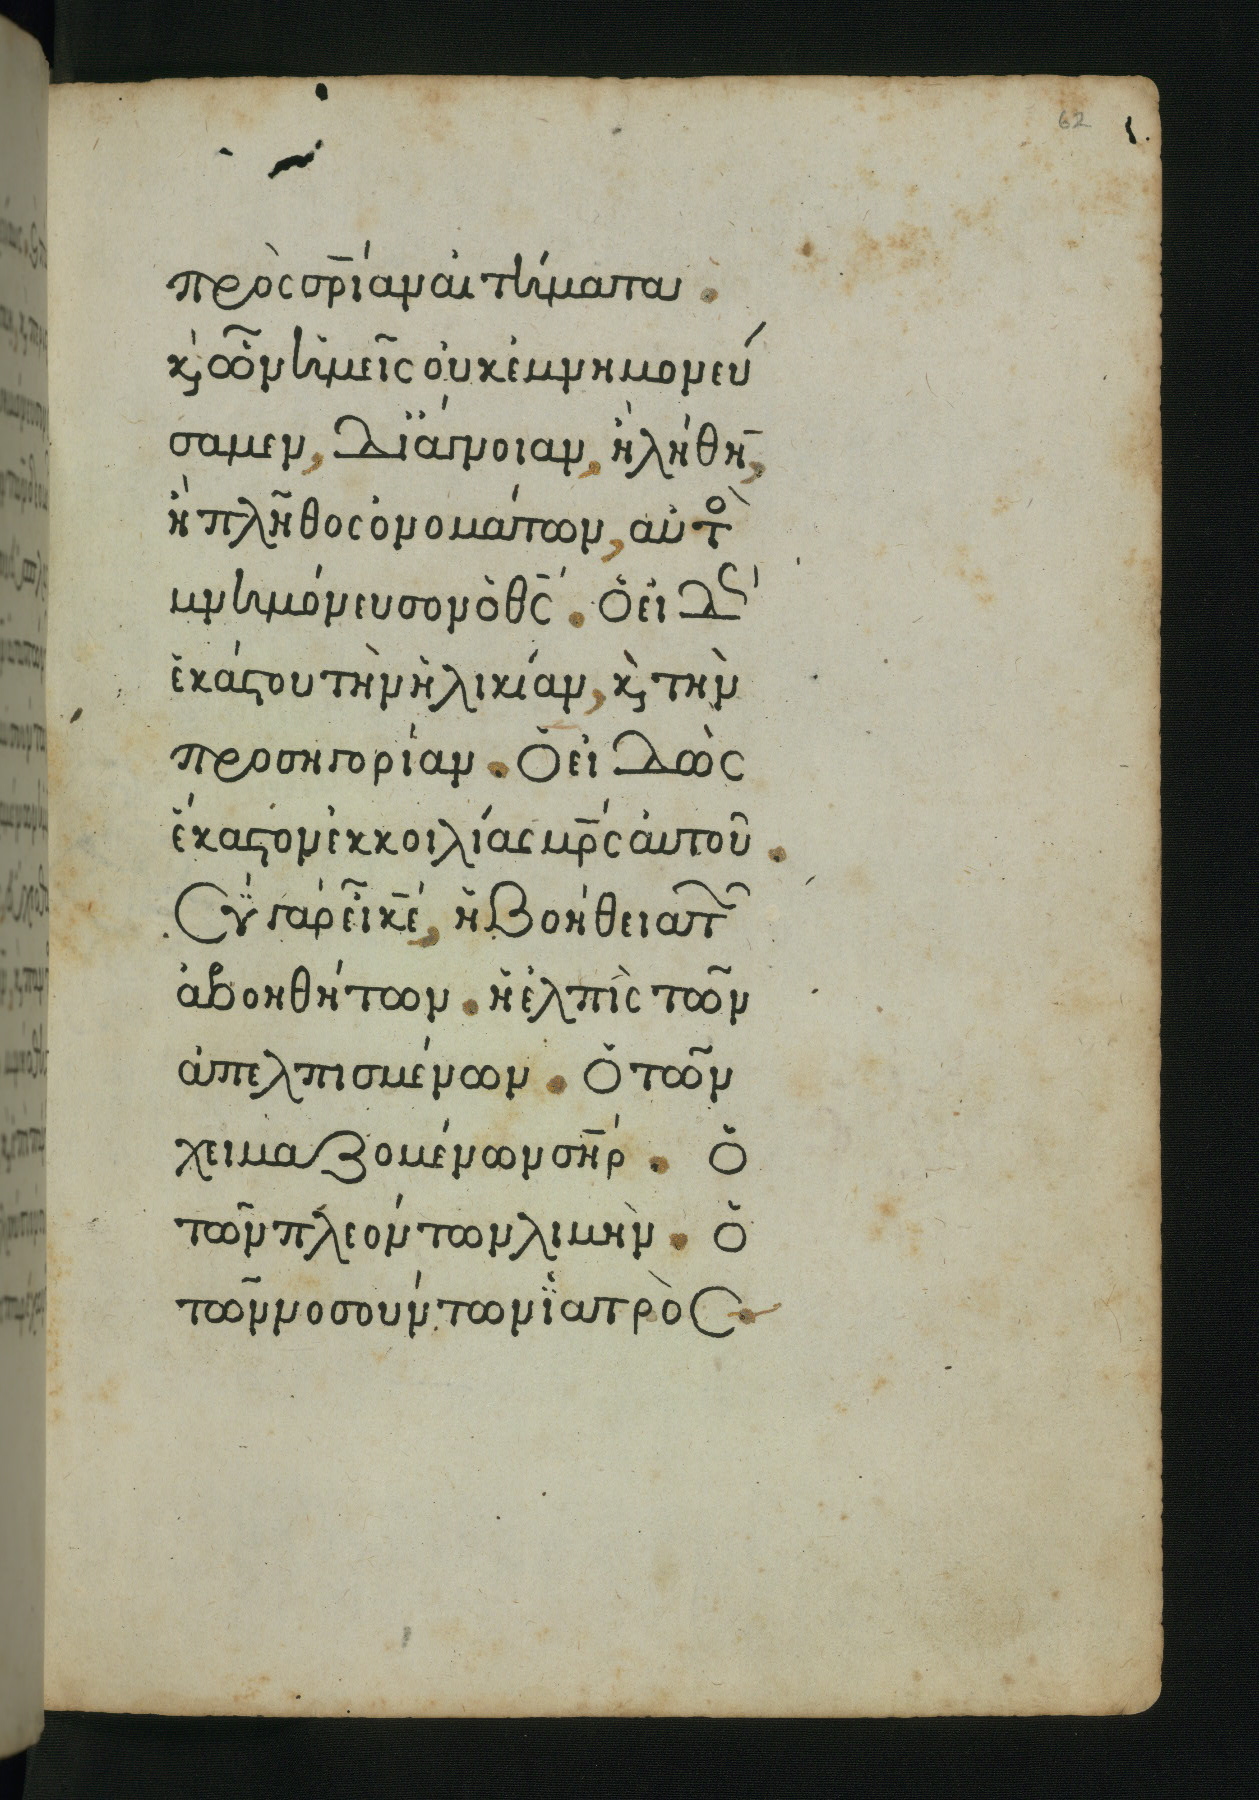 62
πρὸς σρ̅ίαν αἰτήματα.
κ, ὧν ἡμεῖς οὐκ ἐμνημονεύ
σαμεν, δι ἄγνοιαν, ἢ λήθη̅,
ἢ πλῆθος ὀνομάτων, αὐτὸ
μνημόνευσον ὁ θς̅. Ὁ εἰδὼς
ἑκάστου τὴν ἡλικίαν, κ, τὴν
προσηγορίαν. Ὁ εἰδὼς
ἕκαστον ἐκ κοιλίας μρ̅ς αὐτοῦ.
Σὺ γὰρ εἶ κε̅, ἡ βοήθεια τῶν
ἀβοηθήτων. ἡ ἐλπὶς τῶν
ἀπελπισμένων. Ὁ τῶν
χειμαζομένων ση̅ρ. Ὁ
τῶν πλεόντων λιμήν. Ὁ
τῶν νοσούντων ἰατρός.